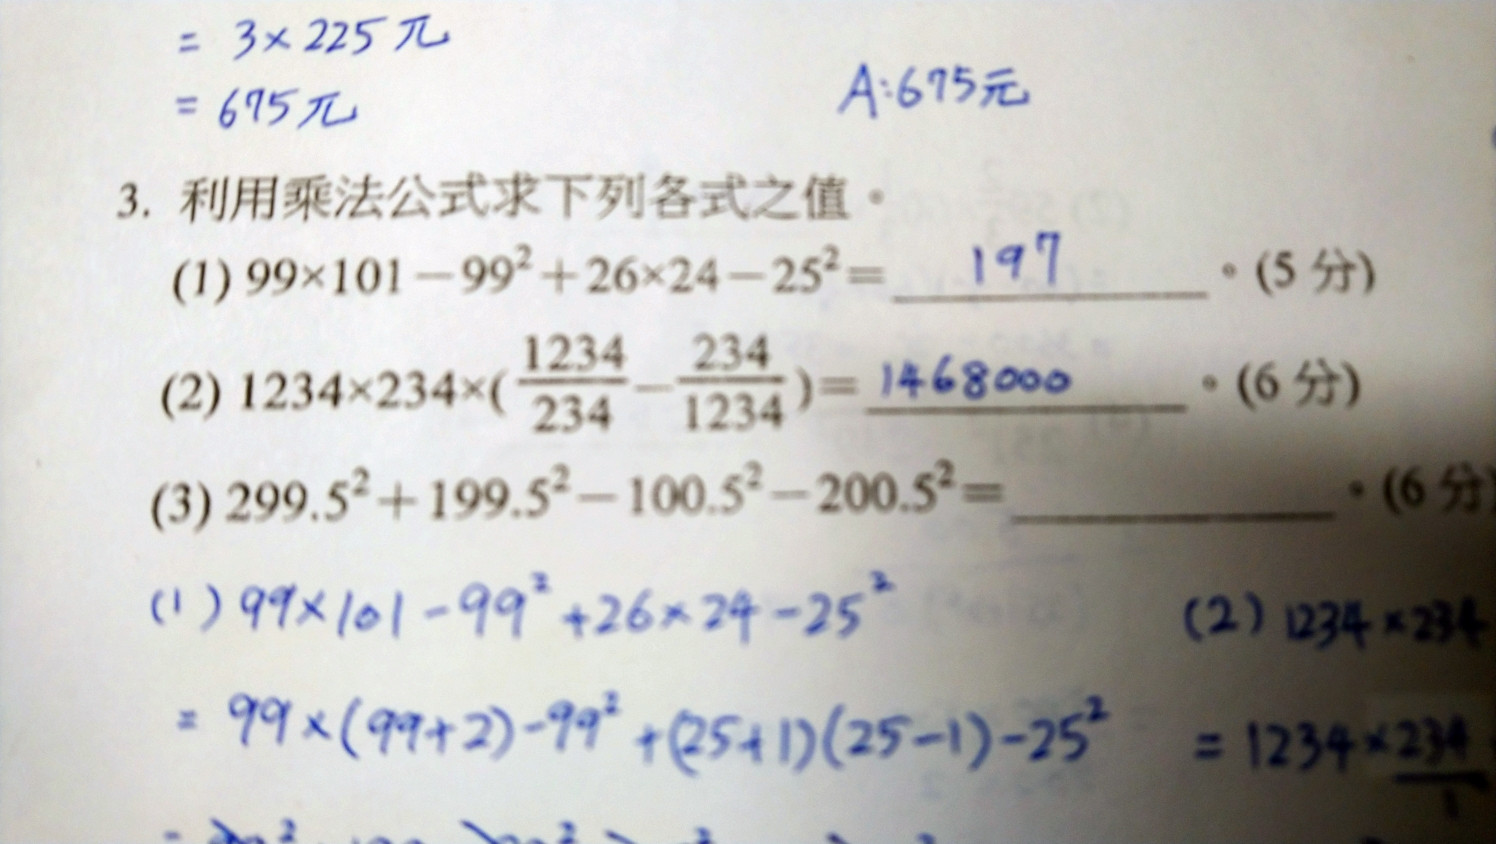 = 3×225元
= 675元
A:675元
3. 利用乘法公式求下列各式之值。
(1) 99×101－99²＋26×24－25²＝ 197 。(5 分)
(2) 1234×234×(1234/234－234/1234)＝ 1468000 。(6 分)
(3) 299.5²＋199.5²－100.5²－200.5²＝________。(6 分)
(1) 99×101-99²+26×24-25²
(2) 1234×234
= 99×(99+2)-99²+(25+1)(25-1)-25²
= 1234×234/1